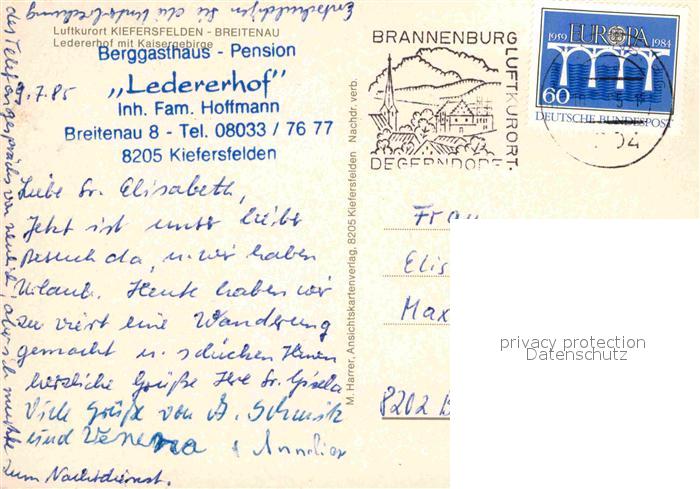 Luftkurort KIEFERSFELDEN - BREITENAU
Ledererhof mit Kaisergebirge
Berggasthaus - Pension
„Ledererhof"
Inh. Fam. Hoffmann
Breitenau 8 - Tel. 08033 / 76 77
8205 Kiefersfelden
9.7.85
Liebe Sr. Elisabeth,
Jetzt ist unser lieber
Besuch da, u. wir haben
Urlaub. Heute haben wir
zu viert eine Wanderung
gemacht u. schicken Ihnen
herzliche Grüße Ihre Sr. Gisela
Viele Grüße von A. Schmitz
und Verena & Annelies
Entschuldigen Sie die Unterbrechung
des Telefongesprächs von neulich, aber ich mußte
zum Nachtdienst.
M. Harrer, Ansichtskartenverlag, 8205 Kiefersfelden Nachdr. verb.
BRANNENBURG
LUFTKURORT
DEGERNDORF
1959 EUROPA 1984
60
DEUTSCHE BUNDESPOST
Frau
Elis
Max
8202 B
privacy protection
Datenschutz